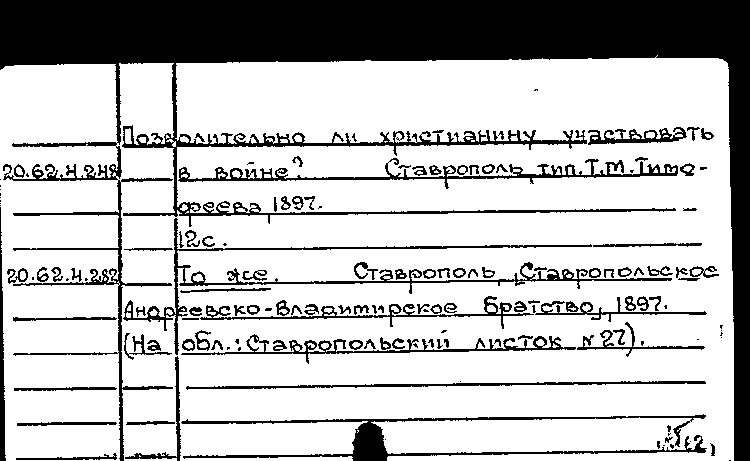 Позволительно ли христианину участвовать
20.62.4.248 в войне? Ставрополь, тип. Т.М. Тимо-
феева, 1897.
12с.
20.62.4.282 То же. Ставрополь, Ставропольское
Андреевско-Владимирское братство, 1897.
(На обл.: Ставропольский листок № 27).